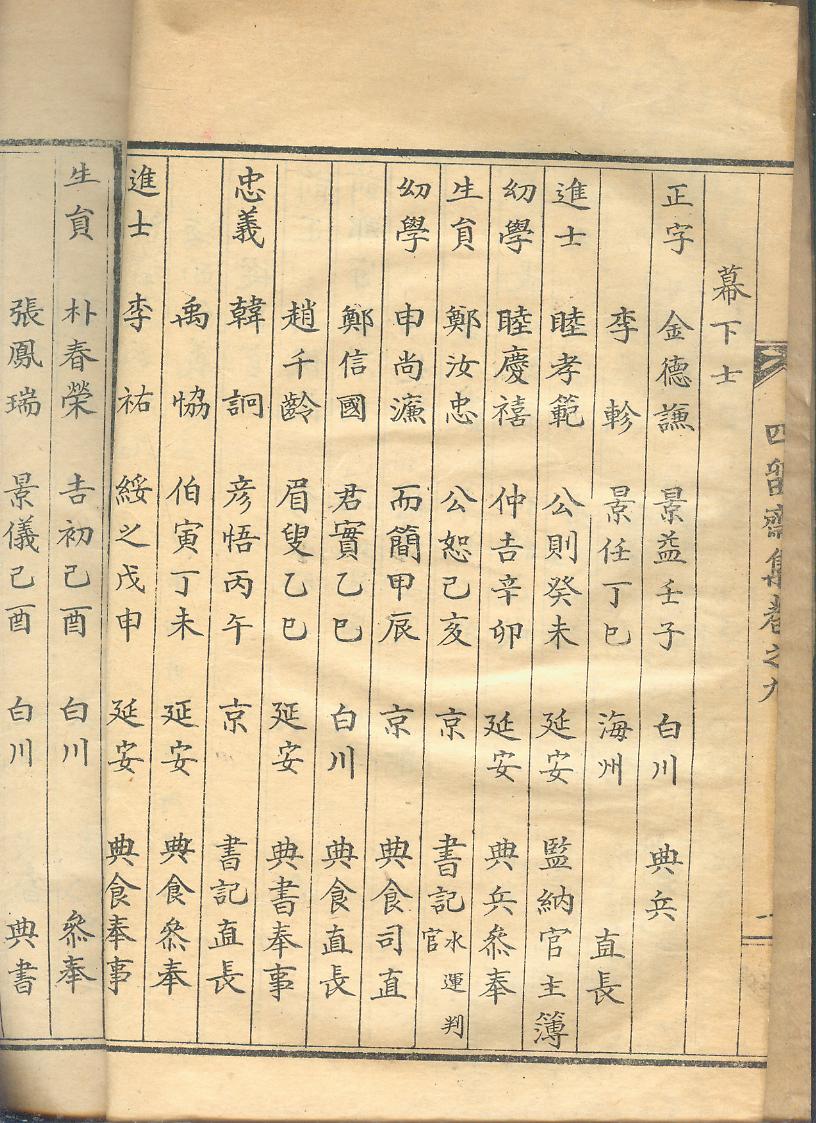 四留齋集卷之九
一
幕下士
正字 金德謙 景益 壬子 白川 典兵
李軫 景任 丁巳 海州 直長
進士 睦孝範 公則 癸未 延安 監納官主簿
幼學 睦慶禧 仲吉 辛卯 延安 典兵叅奉
生貟 鄭汝忠 公恕 己亥 京 書記 水運判官
幼學 申尚濂 而簡 甲辰 京 典食司直
鄭信國 君實 乙巳 白川 典食直長
趙千齡 眉叟 乙巳 延安 典書奉事
忠義 韓詗 彦悟 丙午 京 書記直長
禹恊 伯寅 丁未 延安 典食叅奉
進士 李祐 綏之 戊申 延安 典食奉事
生貟 朴春榮 吉初 己酉 白川 叅奉
張鳳瑞 景儀 己酉 白川 典書